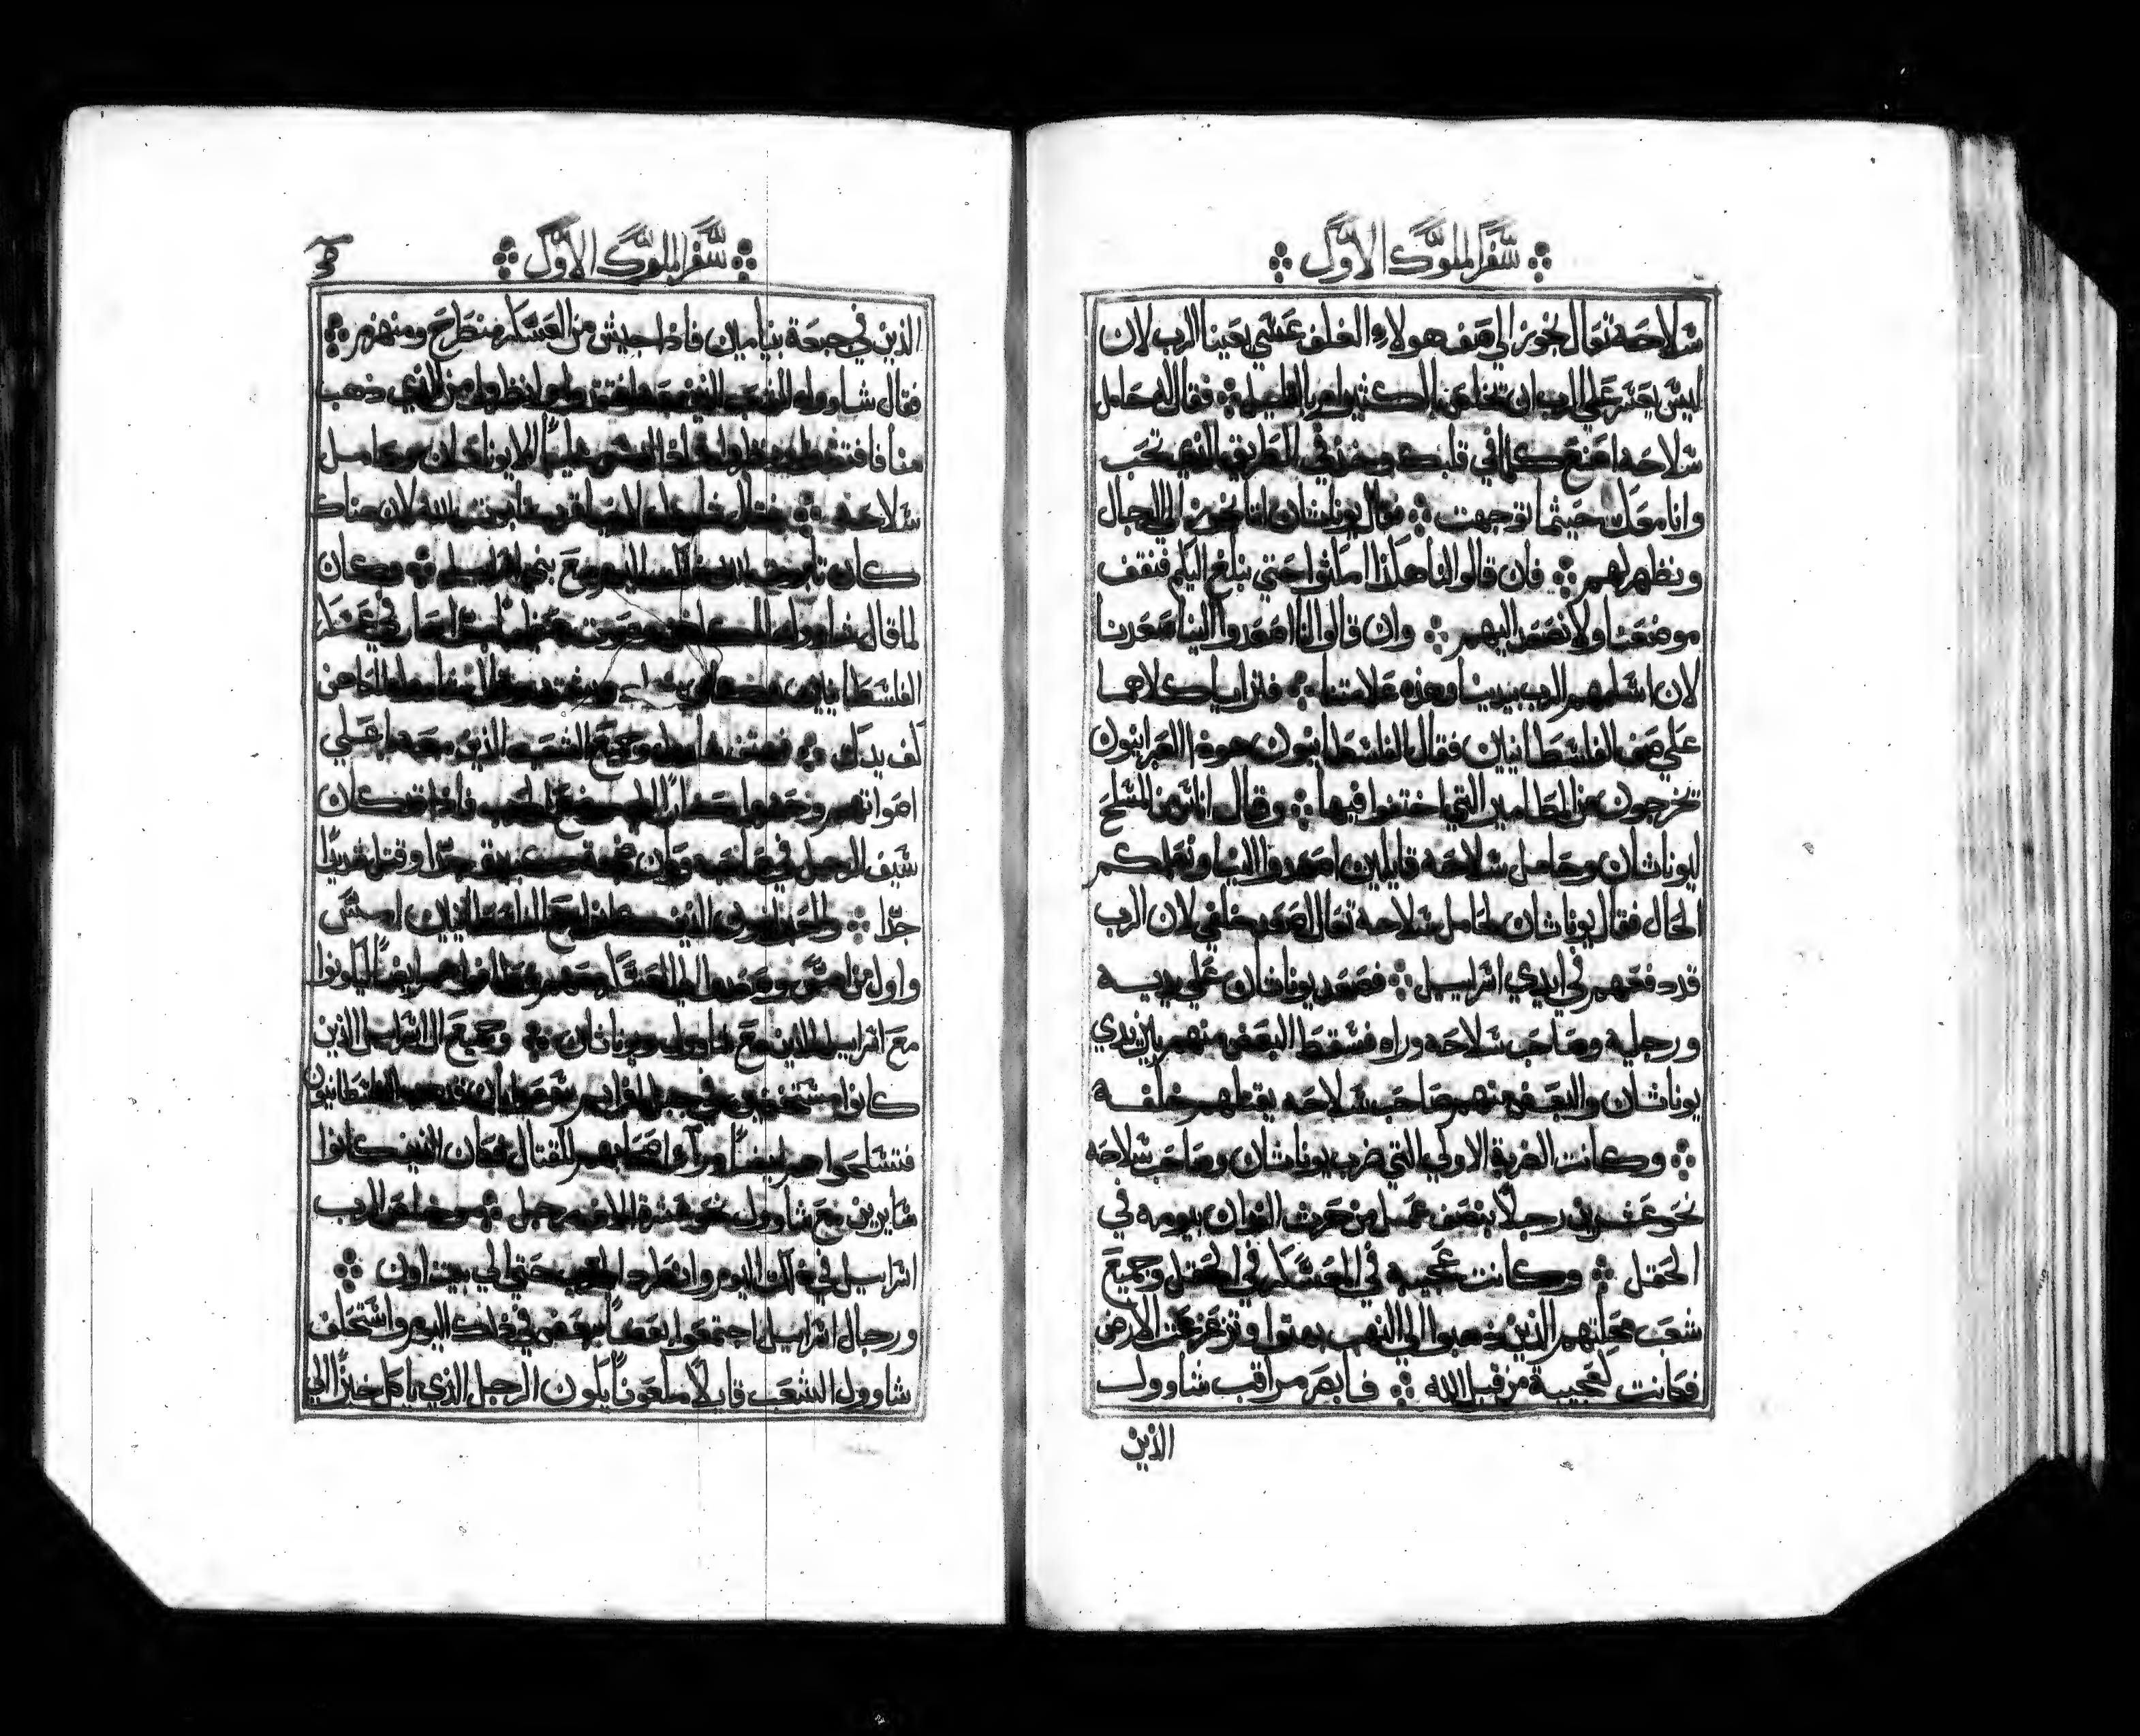 سفر الملوك الاول
سلاحه تعال نجوز الي صف هولاء الغلف عسي يعيننا الرب لان
ليس يعسر علي الرب ان يخلص بالكثير او بالقليل فقال له حامل
سلاحه اصنع كلما في قلبك وخذ في الطريق الذي تحب
وانا معك حيثما توجهت فقال يوناثان اننا نجوز الي الرجال
ونظهر لهم فان قالوا لنا هكذا امكثوا حتي نبلغ اليكم فنقف
موضعنا ولا نصعد اليهم وان قالوا لنا اصعدوا الينا صعدنا
لان اسلمهم الرب بيدينا وهذه علامتنا فتراايا كلاهما
علي صف الفلسطانيين فقال الفلسطانيون هوذا العبرانيون
تخرجون من المطامير التي اختفوا فيها وقال اناس من المسلح
ليوناثان وحامل سلاحه قايلين اصعدوا الينا ونعلمكم
الحال فقال يوناثان لحامل سلاحه تعال اصعد خلفي لان الرب
قد دفعهم في ايدي اسراييل فصعد يوناثان علي يديه
ورجليه وصاحب سلاحه وراه فسقط البعض منهم بين يدي
يوناثان والبعض منهم صاحب سلاحه يقتلهم خلفه
وكانت الضربة الاولي التي ضرب يوناثان وصاحب سلاحه
نحو عشرين رجلا بنصف عمل من حرث الثوران بيومه في
الحقل وكانت عجيبه في المعسكر في الحقل وجميع
شعب محلتهم الذين ذهبوا الي النهب بهتوا وتزعزعت الارض
فكانت كعجيبة من قبل الله فابصر مراقب شاوول
الذين
سفر الملوك الاول
الذين في جبعة بنيامين فاذا جيش من العسكر منطرح ومنهزم
فقال شاوول للشعب الذين معه افتقدوا وانظروا من الذي ذهب
منا فافتقدوا فاذا ليس هناك يوناثان وحامل
سلاحه فقال شاوول لاخيا قرب تابوت الله لان هناك
كان تابوت الله في ذلك اليوم مع بني اسراييل وكان
لما قال شاوول للكاهن وصوت عظيم صار في عسكر
الفلسطانيين فقال شاوول للكاهن
كف يدك فهتف شاوول وجميع الشعب الذين معه باعلي
اصواتهم وجاوا الي موضع الحرب فاذا قد كان
سيف الرجل في صاحبه وكان ضجة كبيرة جدا وقتل شريدا
جدا والعبرانيون الذين كانوا مع الفلسطانيين امس
واول من امس وصعدوا الي العسكر معهم عطفوا هم ايضا ليكونوا
مع اسراييل الذين مع شاوول ويوناثان وجميع ال اسراييل الذين
كانوا مستخفيين في جبل افرايم سمعوا بان قد هرب الفلسطانيون
فتسلحوا هم ايضا وراء اصحابهم للقتال فكان الذين كانوا
سايرين مع شاوول نحو عشرة الاف رجل وخلص الرب
اسراييل في ذلك اليوم وانطرد الحرب حتي الي بيت اون
ورجال اسراييل اجتمعوا بعضا ببعض في ذلك اليوم واستحلف
شاوول الشعب قايلا ملعونا يكون الرجل الذي ياكل خبزا الي